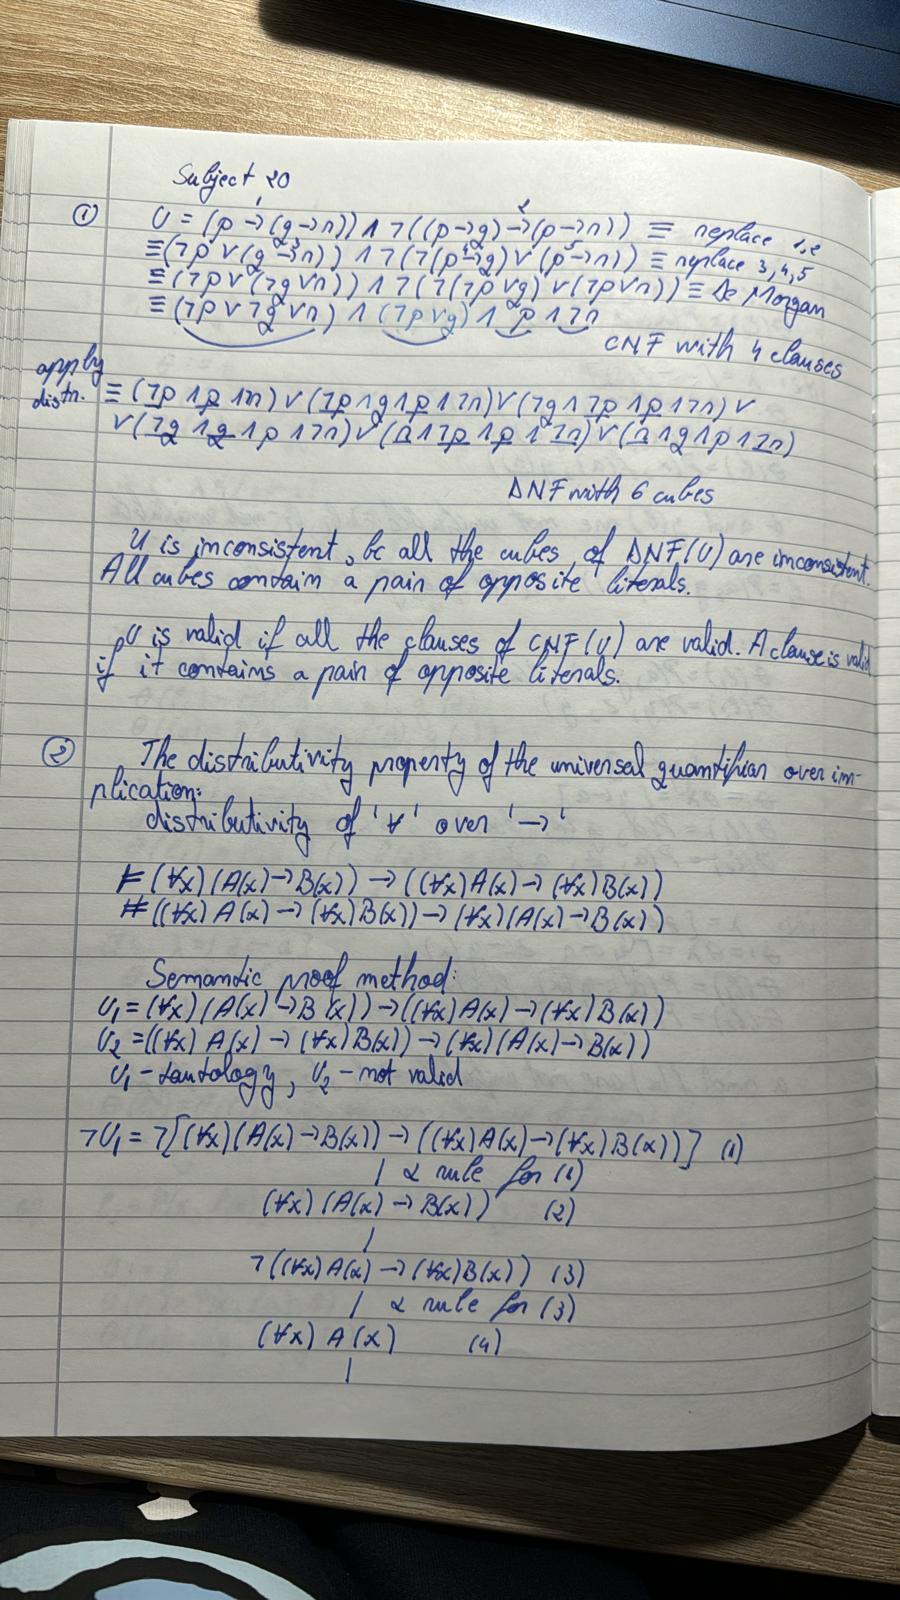 Subject 20
① U = (p → (q → r)) ∧ ¬((p → q) → (p → r)) ≡ replace 1,2
≡ (¬p ∨ (q → r)) ∧ ¬(¬(p → q) ∨ (p → r)) ≡ replace 3,4,5
≡ (¬p ∨ (¬q ∨ r)) ∧ ¬(¬(¬p ∨ q) ∨ (¬p ∨ r)) ≡ De Morgan
≡ (¬p ∨ ¬q ∨ r) ∧ (¬p ∨ q) ∧ p ∧ ¬r
CNF with 4 clauses
apply
distr. ≡ (¬p ∧ p ∧ ¬r) ∨ (¬p ∧ q ∧ p ∧ ¬r) ∨ (¬q ∧ ¬p ∧ p ∧ ¬r) ∨
∨ (¬q ∧ q ∧ p ∧ ¬r) ∨ (r ∧ ¬p ∧ p ∧ ¬r) ∨ (r ∧ q ∧ p ∧ ¬r)
DNF with 6 cubes
U is inconsistent, bc all the cubes of DNF(U) are inconsistent.
All cubes contain a pair of opposite literals.
U is valid if all the clauses of CNF(U) are valid. A clause is valid
if it contains a pair of opposite literals.
② The distributivity property of the universal quantifier over im-
plication:
distributivity of '∀' over '→'
⊨ (∀x)(A(x) → B(x)) → ((∀x)A(x) → (∀x)B(x))
⊭ ((∀x)A(x) → (∀x)B(x)) → (∀x)(A(x) → B(x))
Semantic proof method:
U₁ = (∀x)(A(x) → B(x)) → ((∀x)A(x) → (∀x)B(x))
U₂ = ((∀x)A(x) → (∀x)B(x)) → (∀x)(A(x) → B(x))
U₁ - tautology, U₂ - not valid
¬U₁ = ¬[(∀x)(A(x) → B(x)) → ((∀x)A(x) → (∀x)B(x))] (1)
| α rule for (1)
(∀x)(A(x) → B(x)) (2)
|
¬((∀x)A(x) → (∀x)B(x)) (3)
| α rule for (3)
(∀x)A(x) (4)
|